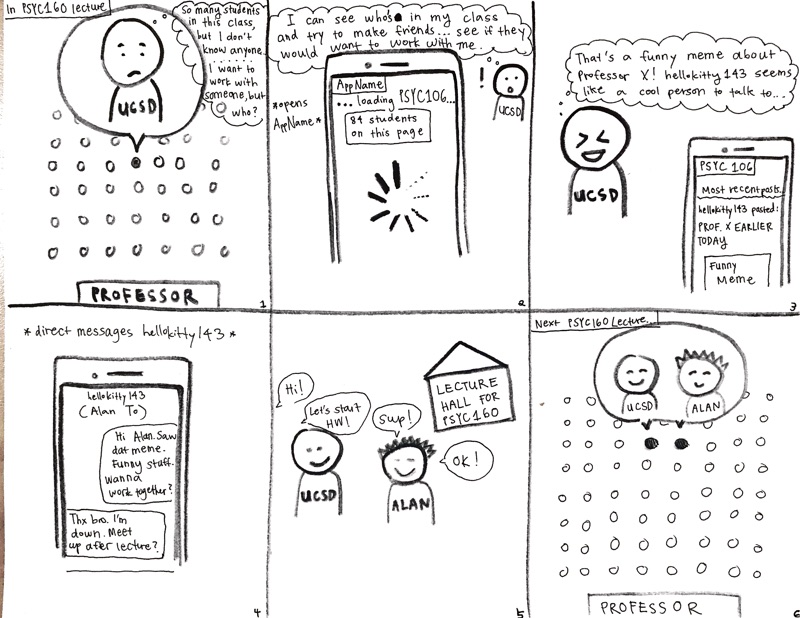 In PSYC160 lecture
So many students
in this class,
but I don't
know anyone.
I want to
work with
someone, but
who?
UCSD
PROFESSOR
1
I can see who's in my class
and try to make friends... see if they
would want to work with me...
*opens
AppName*
AppName
... loading PSYC106...
84 students
on this page
!
UCSD
2
That's a funny meme about
Professor X! hellokitty143 seems
like a cool person to talk to...
UCSD
PSYC 106
Most recent posts..
hellokitty143 posted:
PROF. X EARLIER
TODAY
Funny
MEME
3
*direct messages hellokitty143*
hellokitty143
(Alan To)
Hi Alan. Saw
dat meme.
Funny stuff.
Wanna
work together?
Thx bro. I'm
down. Meet
up after lecture?
4
Hi!
Let's start
HW!
Sup!
OK!
LECTURE
HALL FOR
PSYC160
UCSD
ALAN
5
Next PSYC160 Lecture...
UCSD
ALAN
PROFESSOR
6